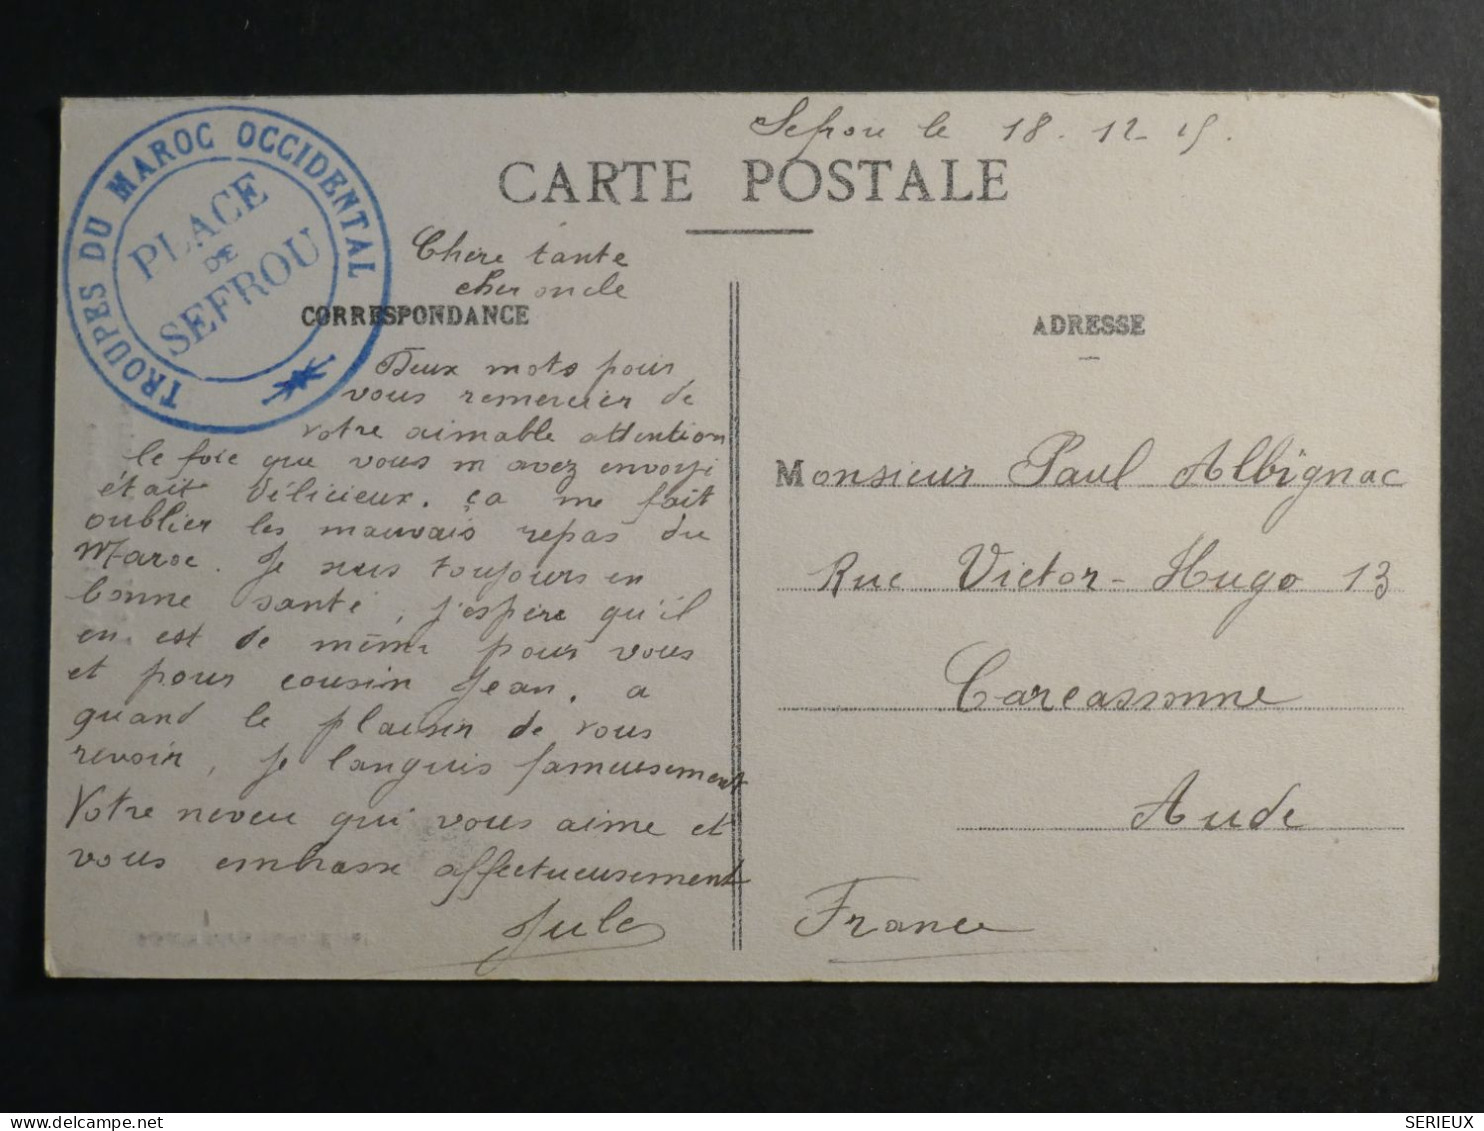 Sefrou le 18-12-15.
CARTE POSTALE
TROUPES DU MAROC OCCIDENTAL
PLACE
DE
SEFROU
Chère tante
cher oncle
CORRESPONDANCE
Deux mots pour
vous remercier de
votre aimable attention
le foie que vous m avez envoyé
était délicieux. ça me fait
oublier les mauvais repas du
Maroc. Je suis toujours en
bonne santé, j'espère qu'il
en est de même pour vous
et pour cousin Jean. a
quand le plaisir de vous
revoir, je languis fameusement
Votre neveu qui vous aime et
vous embrasse affectueusement
Jules
ADRESSE
Monsieur Paul Albignac
Rue Victor-Hugo 13
Carcassonne
Aude
France
delcampe.net
SERIEUX